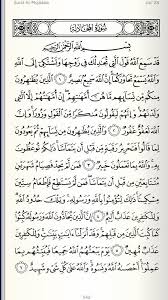 Surat Al-Mujadala
سُورَةُ الْمُجَادِلَةِ
بِسْمِ اللَّهِ الرَّحْمَٰنِ الرَّحِيمِ
قَدْ سَمِعَ اللَّهُ قَوْلَ الَّتِي تُجَادِلُكَ فِي زَوْجِهَا وَتَشْتَكِي إِلَى اللَّهِ
وَاللَّهُ يَسْمَعُ تَحَاوُرَكُمَا إِنَّ اللَّهَ سَمِيعٌ بَصِيرٌ ١ الَّذِينَ يُظَاهِرُونَ
مِنكُم مِّن نِّسَائِهِم مَّا هُنَّ أُمَّهَاتِهِمْ إِنْ أُمَّهَاتُهُمْ إِلَّا اللَّائِي
وَلَدْنَهُمْ وَإِنَّهُمْ لَيَقُولُونَ مُنكَرًا مِّنَ الْقَوْلِ وَزُورًا وَإِنَّ اللَّهَ
لَعَفُوٌّ غَفُورٌ ٢ وَالَّذِينَ يُظَاهِرُونَ مِن نِّسَائِهِمْ ثُمَّ يَعُودُونَ
لِمَا قَالُوا فَتَحْرِيرُ رَقَبَةٍ مِّن قَبْلِ أَن يَتَمَاسَّا ذَٰلِكُمْ تُوعَظُونَ بِهِ
وَاللَّهُ بِمَا تَعْمَلُونَ خَبِيرٌ ٣ فَمَن لَّمْ يَجِدْ فَصِيَامُ شَهْرَيْنِ
مُتَتَابِعَيْنِ مِن قَبْلِ أَن يَتَمَاسَّا فَمَن لَّمْ يَسْتَطِعْ فَإِطْعَامُ سِتِّينَ
مِسْكِينًا ذَٰلِكَ لِتُؤْمِنُوا بِاللَّهِ وَرَسُولِهِ وَتِلْكَ حُدُودُ اللَّهِ
وَلِلْكَافِرِينَ عَذَابٌ أَلِيمٌ ٤ إِنَّ الَّذِينَ يُحَادُّونَ اللَّهَ وَرَسُولَهُ
كُبِتُوا كَمَا كُبِتَ الَّذِينَ مِن قَبْلِهِمْ وَقَدْ أَنزَلْنَا آيَاتٍ بَيِّنَاتٍ وَلِلْكَافِرِينَ
عَذَابٌ مُّهِينٌ ٥ يَوْمَ يَبْعَثُهُمُ اللَّهُ جَمِيعًا فَيُنَبِّئُهُم بِمَا
عَمِلُوا أَحْصَاهُ اللَّهُ وَنَسُوهُ وَاللَّهُ عَلَىٰ كُلِّ شَيْءٍ شَهِيدٌ ٦